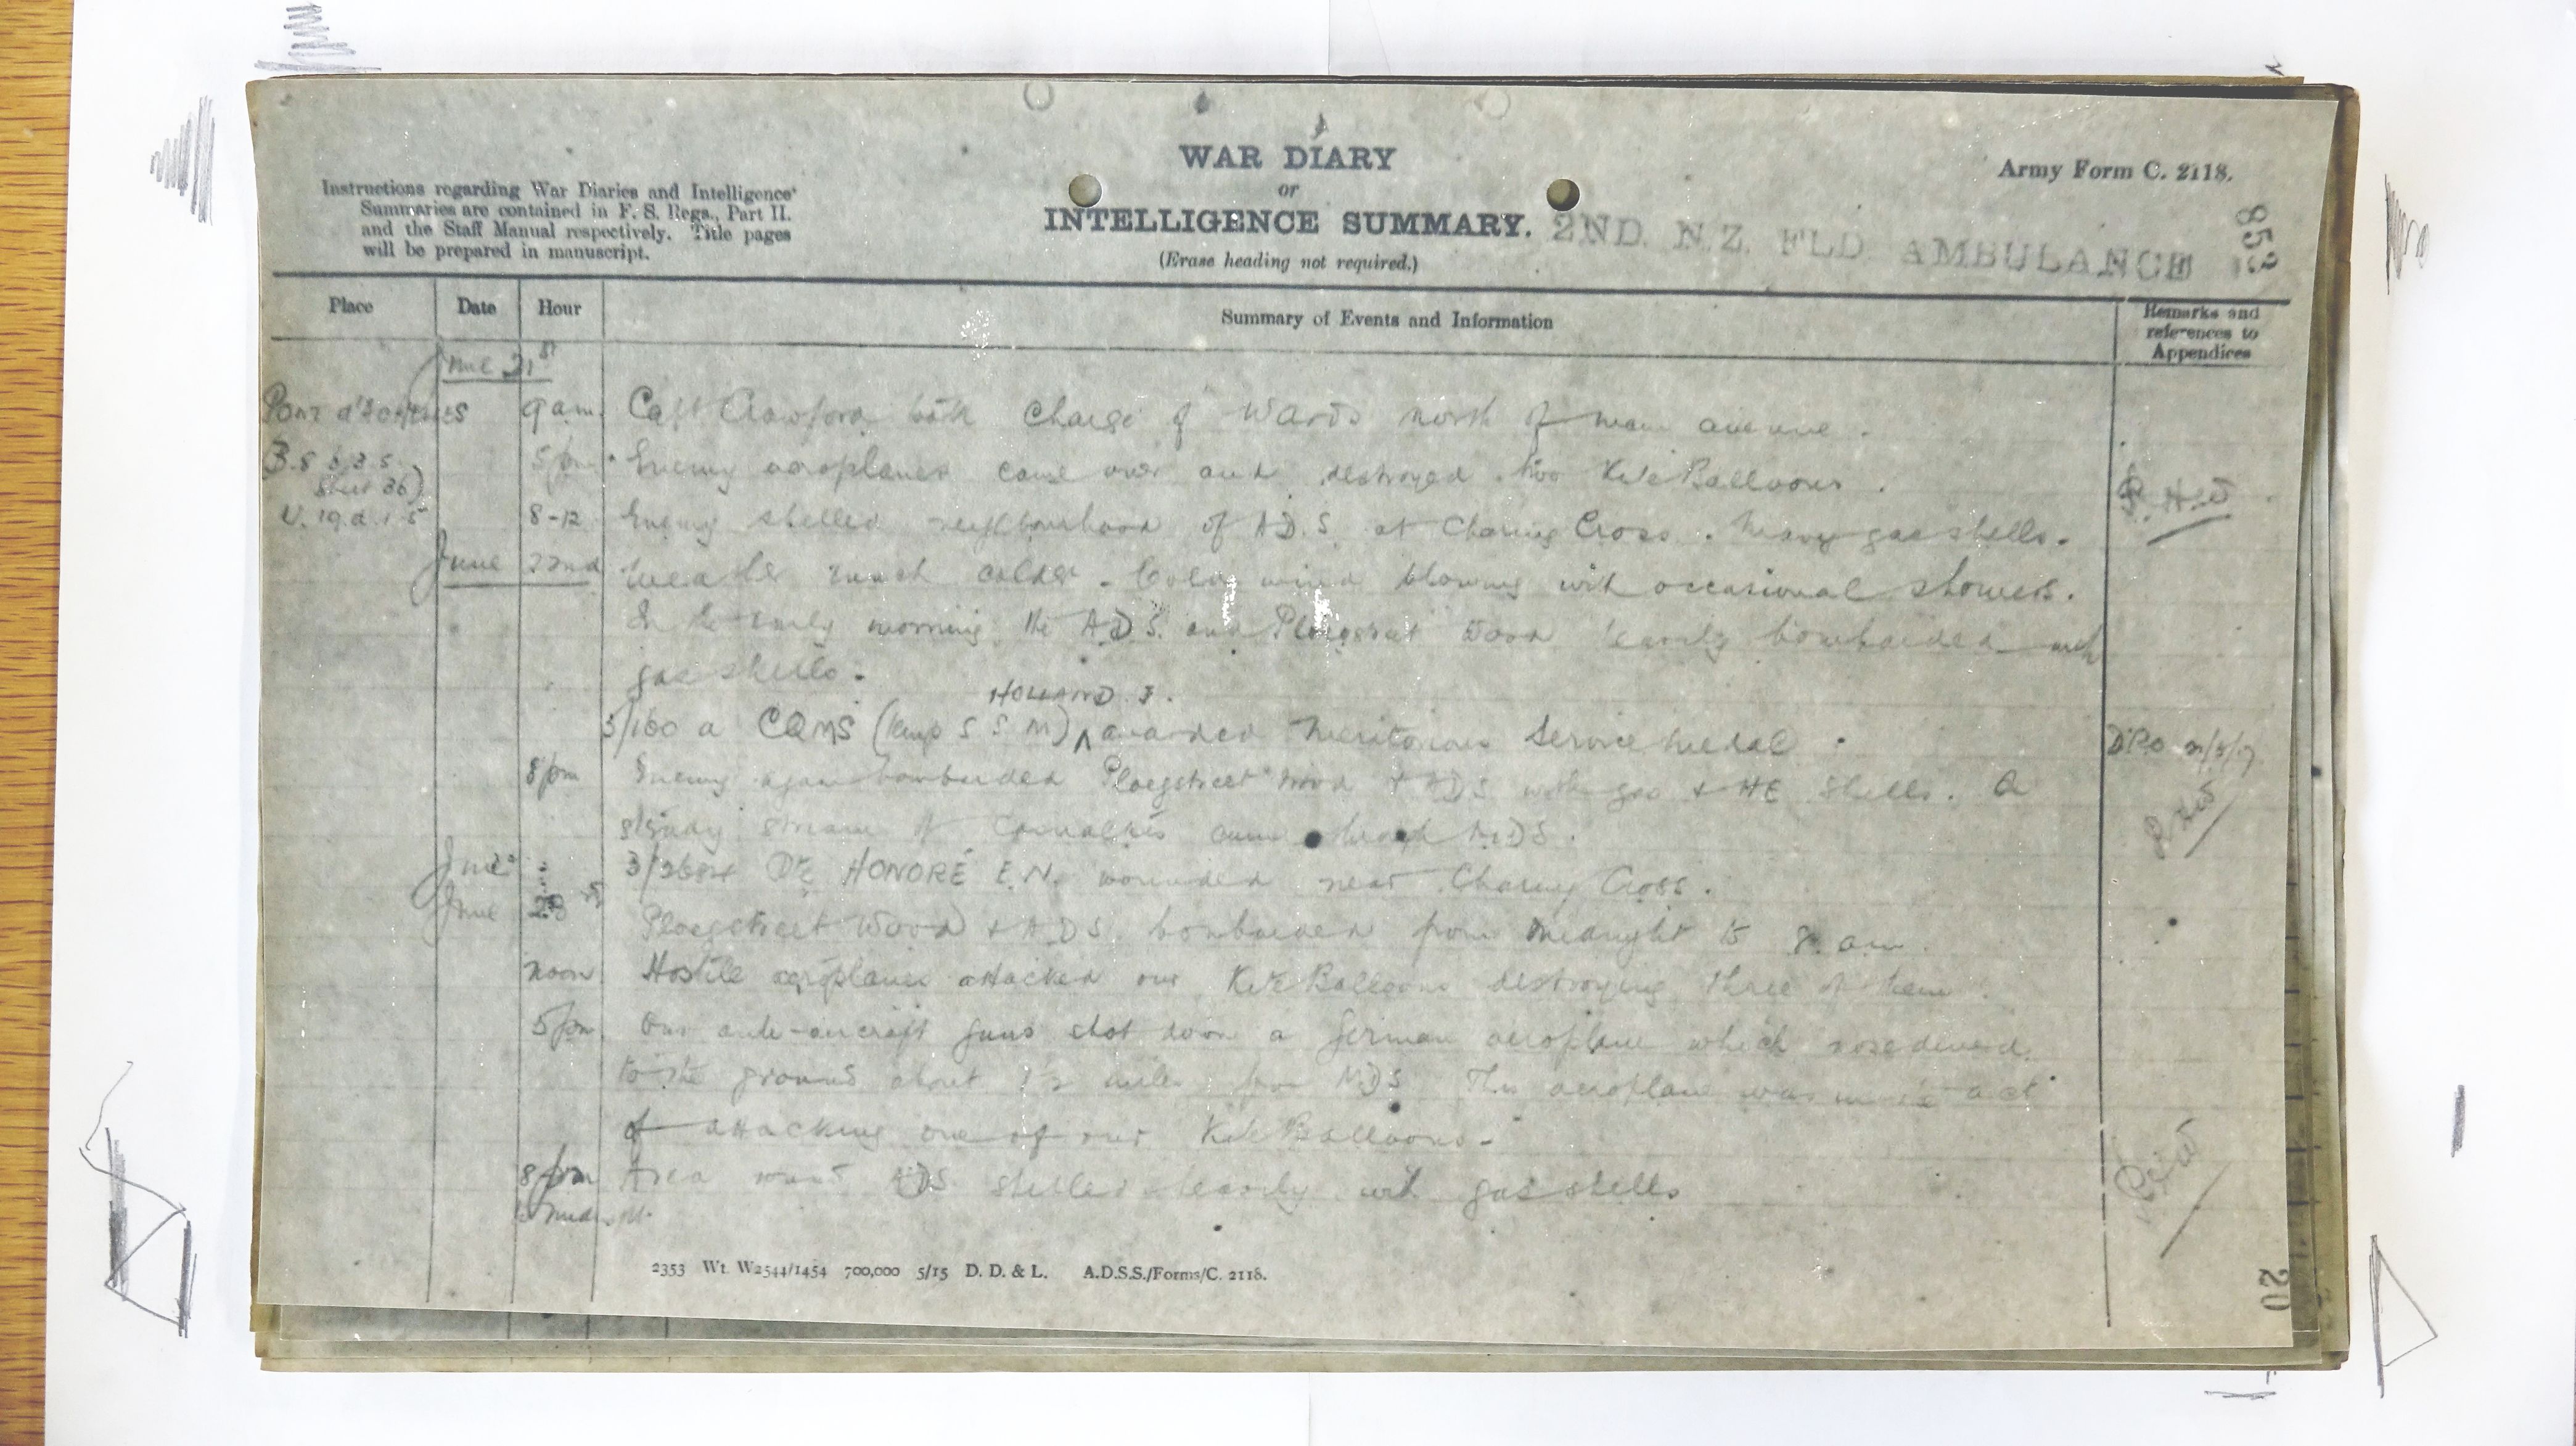 WAR DIARY
or
INTELLIGENCE SUMMARY.
(Erase heading not required.)
Army Form C. 2118.
Instructions regarding War Diaries and Intelligence
Summaries are contained in F. S. Regs., Part II.
and the Staff Manual respectively. Title pages
will be prepared in manuscript.
2ND. N.Z. FLD. AMBULANCE
853
Place Date Hour Summary of Events and Information Remarks and references to Appendices
June 21st
9 am. Capt Crawford took charge of Wards north of main avenue.
B.8.b.3.5. 5 pm. Enemy aeroplanes came over and destroyed two Kite Balloons.
Sheet 36)
U.19.d.1.5 8-12 Enemy shelled neighbourhood of A.D.S. at Charing Cross. Heavy gas shells.
June 22nd Weather much colder. Cold wind blowing with occasional showers.
In the early morning the A.D.S. and Ploegstreet Wood heavily bombarded with
gas shells.
HOLLAND J.
3/160 a CQMS (Temp S S M) ^ awarded Meritorious Service Medal.
8 pm Enemy again bombarded Ploegstreet Wood & ADS with gas & HE Shells. A
steady stream of casualties came through MDS.
Pte HONORÉ E.N. wounded near Charing Cross.
June 23 Ploegstreet Wood & A.D.S. bombarded from midnight to 8. am.
noon Hostile aeroplanes attacked our Kite Balloons destroying three of them.
5 pm. Our anti-aircraft guns shot down a German aeroplane which nosedived
to the ground about 1½ miles from MDS. This aeroplane was in the act
of attacking one of our Kite Balloons.
8 pm Area round ADS shelled heavily with gas shells
to midnight.
2353 Wt. W2544/1454 700,000 5/15 D. D. & L. A.D.S.S./Forms/C. 2118.
20